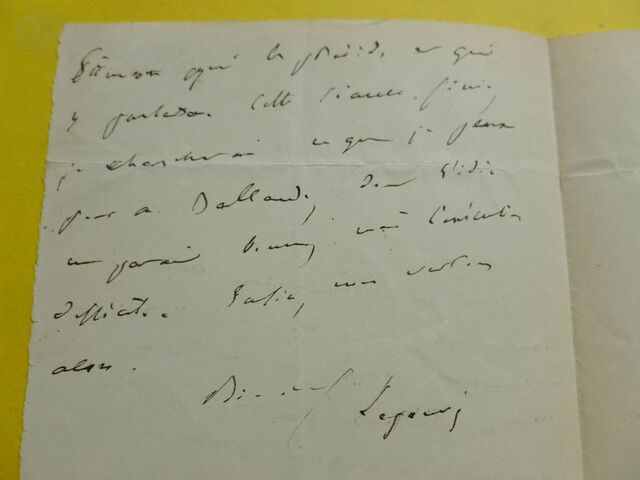 qui la préside, et qui
y parlera. Cette séance finie,
je chercherai ce que je peux
pour ce Ballande, dont l'idée
me parait bonne, mais l'exécution
difficile. Enfin, nous verrons
alors.
Legouvé